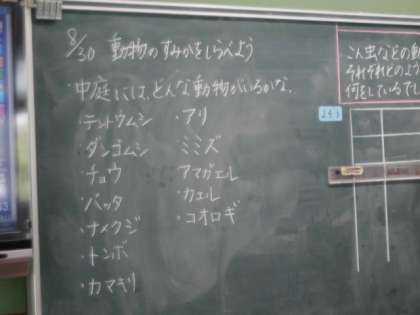 8/30 動物のすみかをしらべよう
・中庭には、どんな動物がいるかな。
・テントウムシ
・ダンゴムシ
・チョウ
・バッタ
・ナメクジ
・トンボ
・カマキリ
・アリ
・ミミズ
・アマガエル
・カエル
・コオロギ
こん虫などの動
それぞれどのよう
何をしているでし